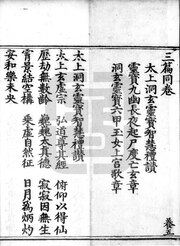 三篇同卷
太上洞玄靈寶智慧禮讚
靈寶九幽長夜起尸度亡玄章
洞玄靈寶六甲玉女上宮歌章
太上洞玄靈寶智慧禮讚
太上玄虛宗 弘道尊其經 俯仰以得仙
歷劫無數齡 巍巍太真德 寂寂因無生
霄景結空構 乘虛自然征 日月為炳灼
安和樂未央